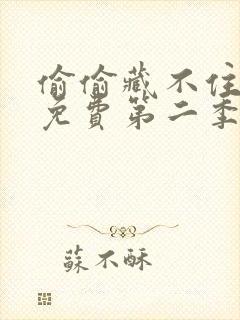 偷偷藏不住
免費第二季
蘇不酥